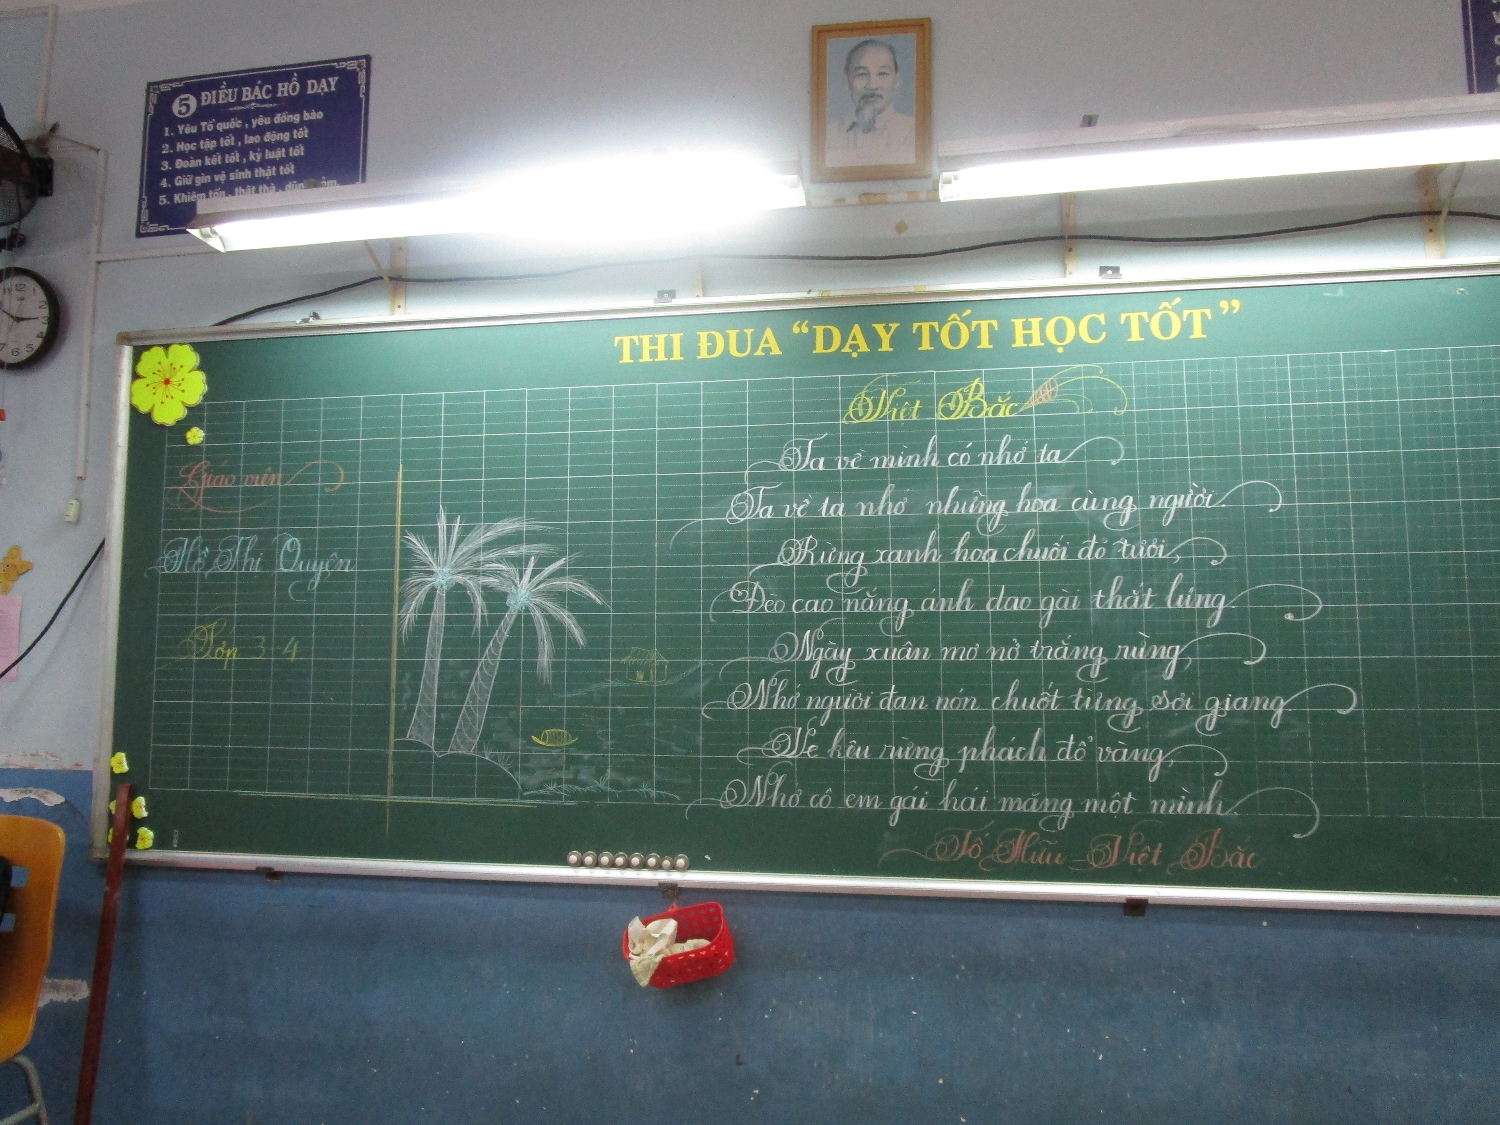 5 ĐIỀU BÁC HỒ DẠY
1. Yêu Tổ quốc, yêu đồng bào
2. Học tập tốt, lao động tốt
3. Đoàn kết tốt, kỷ luật tốt
4. Giữ gìn vệ sinh thật tốt
5. Khiêm tốn, thật thà, dũng cảm.
THI ĐUA “DẠY TỐT HỌC TỐT”
Việt Bắc
Ta về mình có nhớ ta
Ta về ta nhớ những hoa cùng người.
Rừng xanh hoa chuối đỏ tươi,
Đèo cao nắng ánh dao gài thắt lưng.
Ngày xuân mơ nở trắng rừng,
Nhớ người đan nón chuốt từng sợi giang
Ve kêu rừng phách đổ vàng,
Nhớ cô em gái hái măng một mình.
Tố Hữu - Việt Bắc
Giáo viên
Hồ Thị Quyên
Lớp 3-4